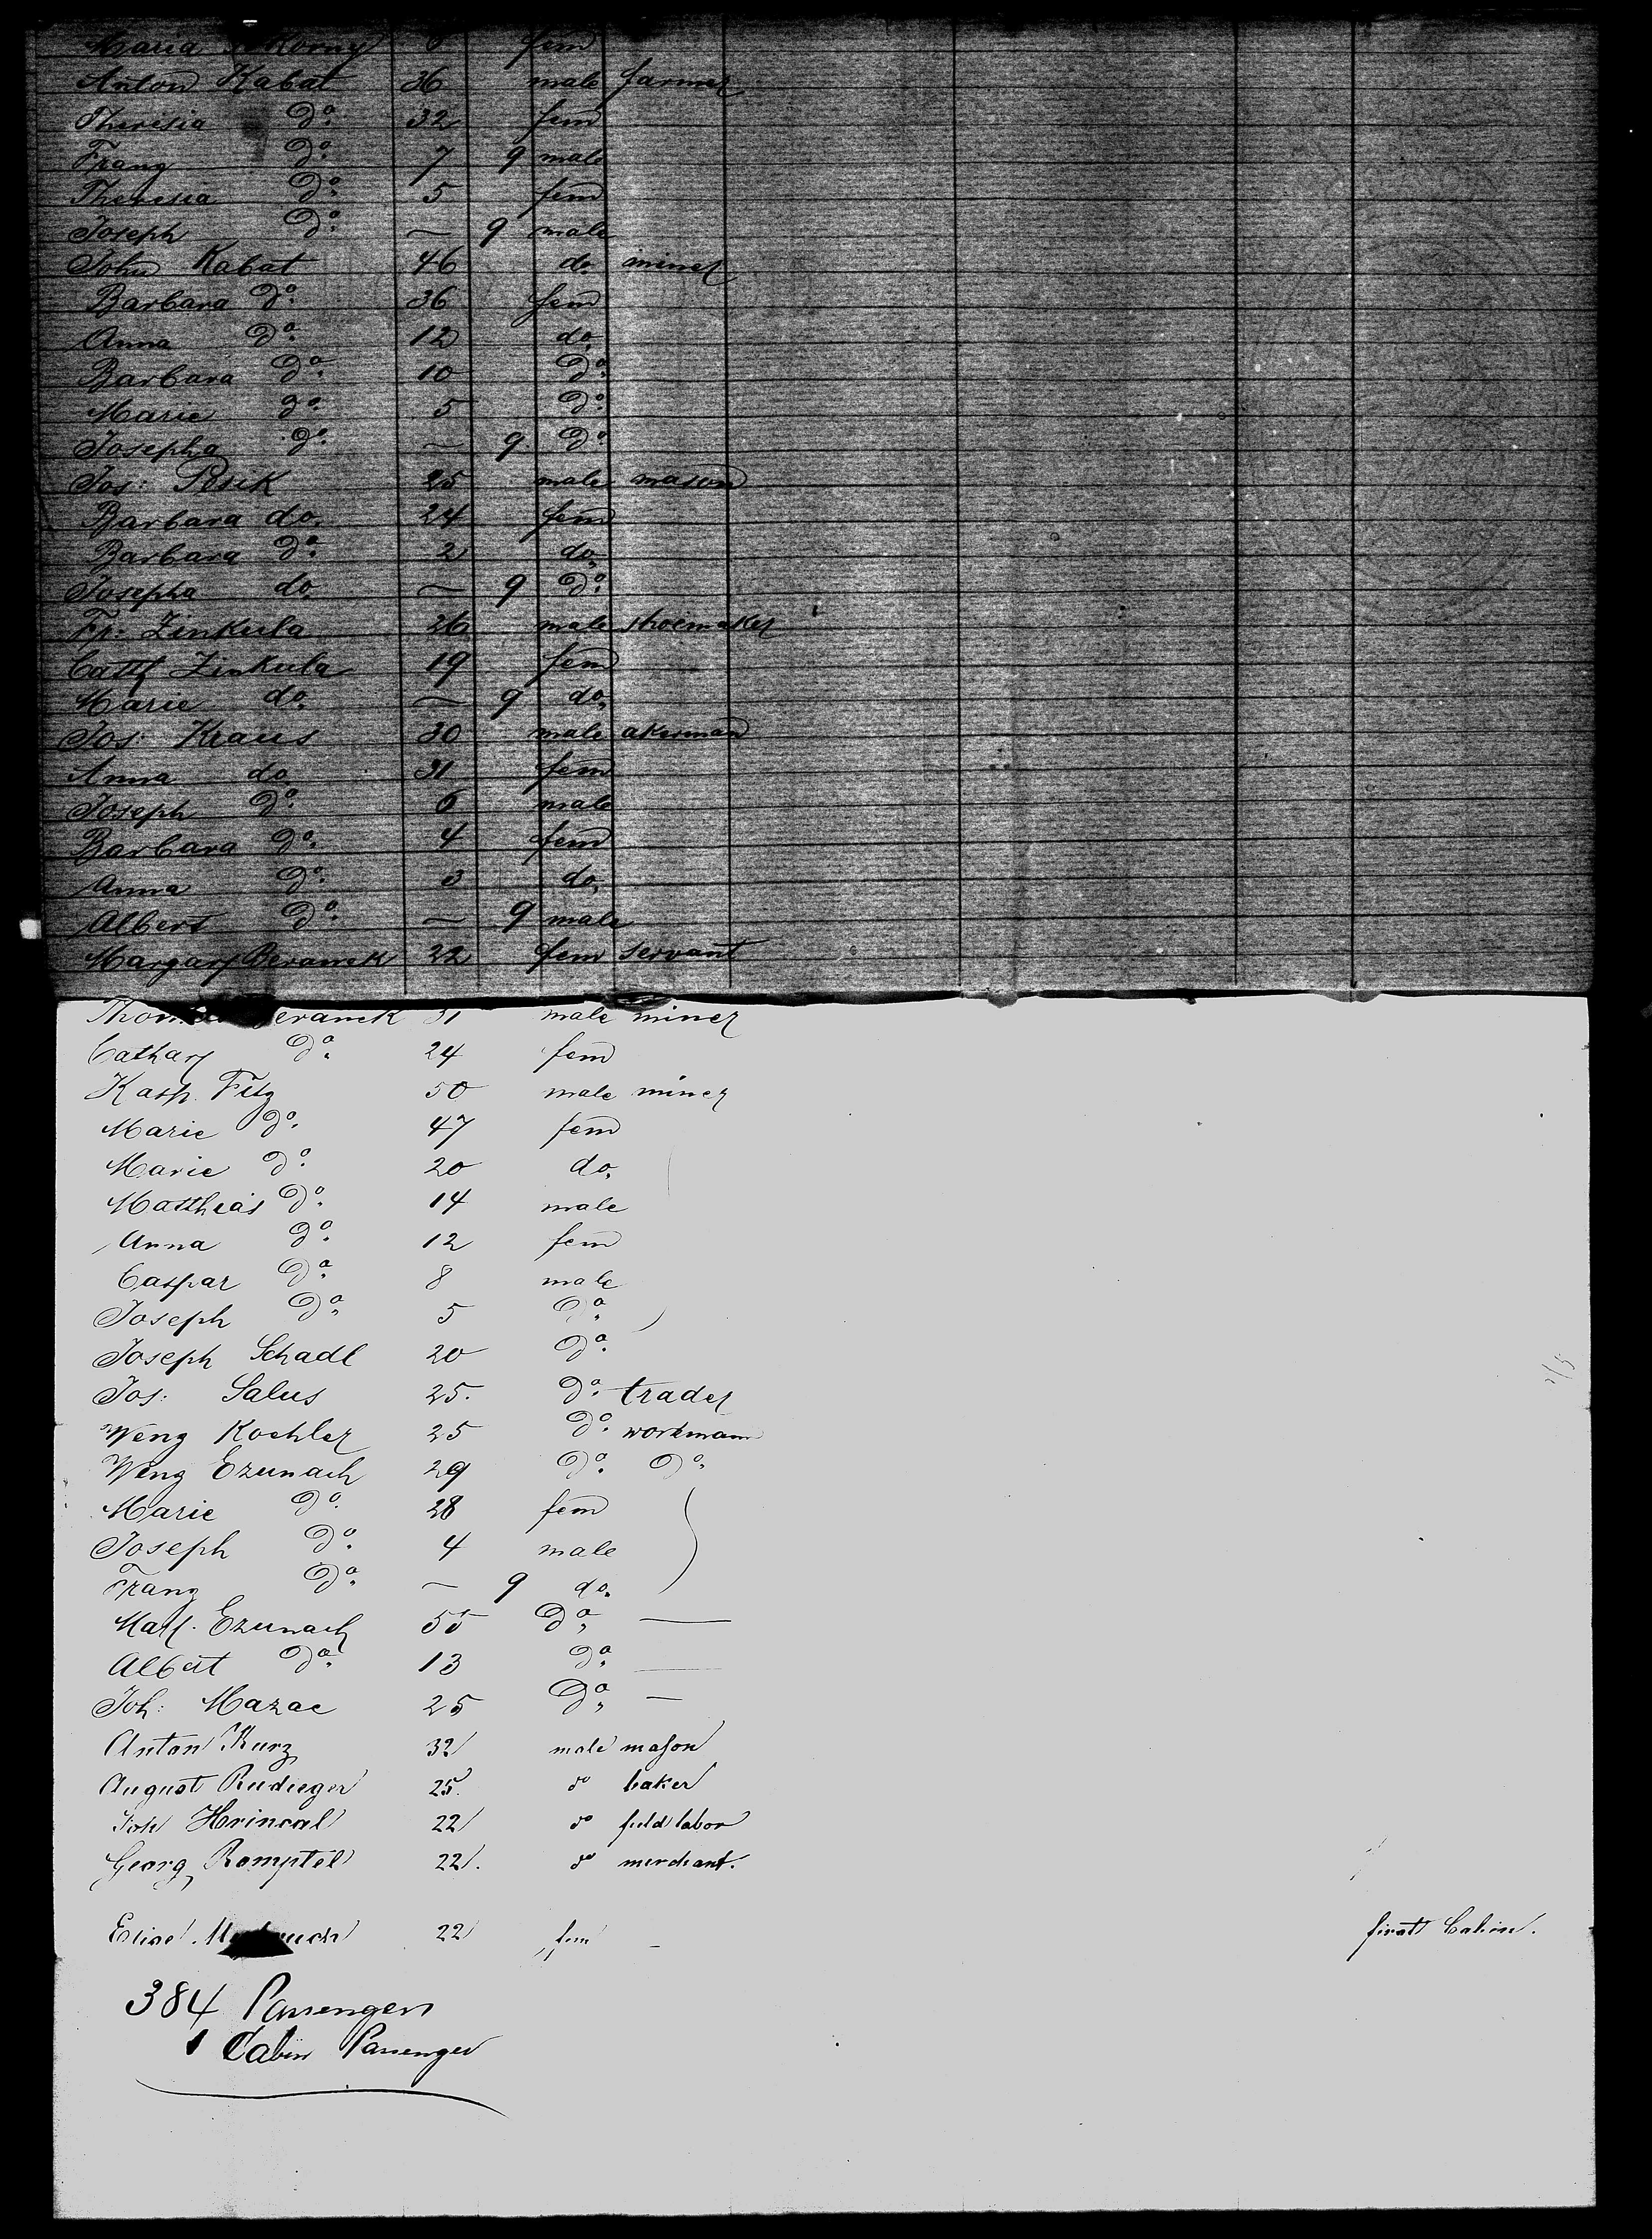 Maria 6 fem
Anton Kabat 36 male farmer
Theresia Do. 32 fem
Franz Do. 7 9 male
Theresia Do. 5 fem
Joseph Do. — 9 male
John Kabat 46 do miner
Barbara Do. 36 fem
Anna Do. 12 do.
Barbara Do. 10 Do.
Marie Do. 5 Do.
Josepha Do. — 9 Do.
Jos: Pesik 25 male mason
Barbara do. 24 fem
Barbara Do. 2 do.
Josepha do. — 9 Do.
Fr: Zinkula 26 male shoemaker
Cath Zinkula 19 fem
Marie do. — 9 do.
Jos: Kraus 30 male akerman
Anna do 31 fem
Joseph Do. 6 male
Barbara Do. 4 fem
Anna Do. 3 do.
Albert Do. — 9 male
Margar Beranek 22 fem servant
31 male miner
Cathar Do. 24 fem
Kasp. Fitz 50 male miner
Marie Do. 47 fem
Marie Do. 20 do.
Matthias Do. 14 male
Anna Do. 12 fem
Caspar Do. 8 male
Joseph Do. 5 Do.
Joseph Schadl 20 Do.
Jos: Salus 25. Do. trader
Wenz Koehler 25 Do. workmann
Wenz Ezunach 29 Do. Do.
Marie Do. 28 fem
Joseph Do. 4 male
Franz Do. — 9 do.
Mat. Ezunach 55 Do. —
Albert Do. 13 Do. —
Joh: Mazac 25 Do. —
Anton Kurz 32 male mason
August Rudieger 25. do baker
Joh Hrincal 22 do field labor
Georg Romptel 22. do merchant.
Elise 22 fem — first Cabin.
384 Passengers
1 Cabin Passenger